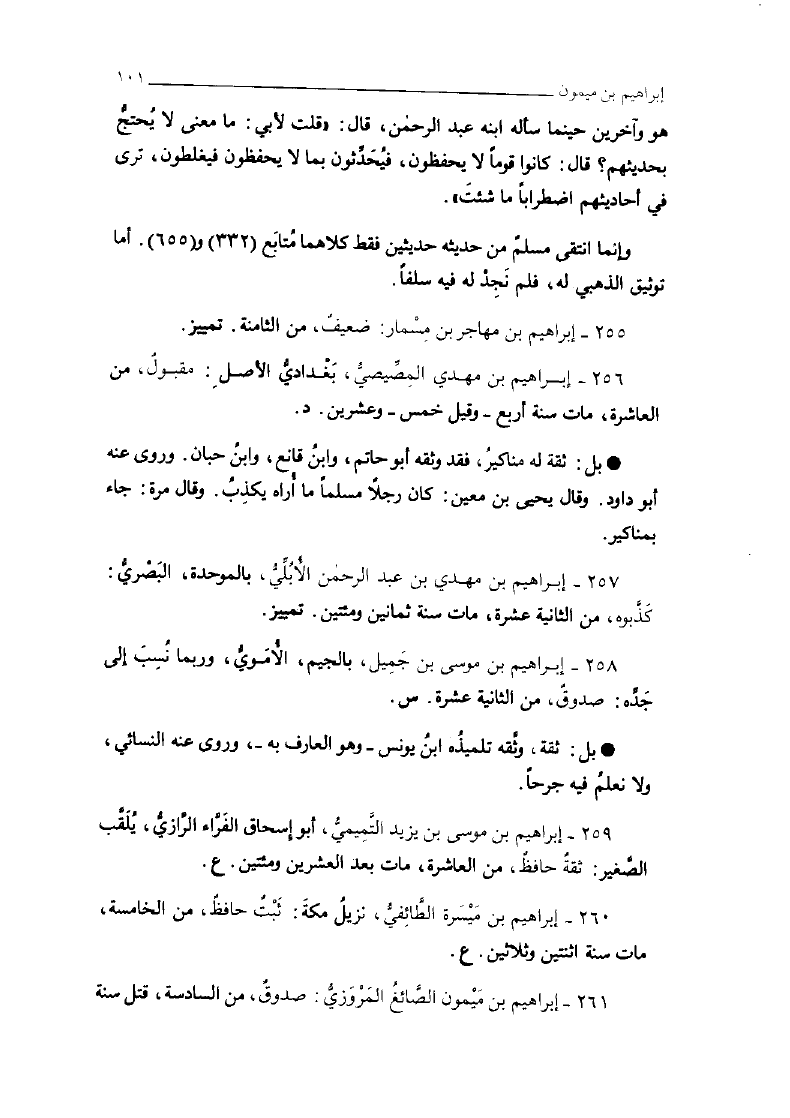 إبراهيم بن ميمون ١٠١
هو وآخرين حينما سأله ابنه عبد الرحمٰن، قال: «قلت لأبي: ما معنى لا يُحتجُّ
بحديثهم؟ قال: كانوا قوماً لا يحفظون، فيُحَدِّثون بما لا يحفظون فيغلطون، ترى
في أحاديثهم اضطراباً ما شئتَ».
وإنما انتقى مسلمٌ من حديثه حديثين فقط كلاهما مُتابَع (٣٣٢) و(٦٥٥). أما
توثيق الذهبي له، فلم نَجِدْ له فيه سلفاً.
٢٥٥ ـ إبراهيم بن مهاجر بن مِسْمار: ضعيفٌ، من الثامنة. تمييز.
٢٥٦ ـ إبـراهيم بن مهـدي المِصِّيصيُّ، بَغْـداديُّ الأصـل: مقبـولٌ، من
العاشرة، مات سنة أربع ـ وقيل خمس ـ وعشرين. د.
● بل: ثقة له مناكيرُ، فقد وثقه أبو حاتم، وابنُ قانع، وابنُ حبان. وروى عنه
أبو داود. وقال يحيى بن معين: كان رجلاً مسلماً ما أُراه يكذِبُ. وقال مرة: جاء
بمناكير.
٢٥٧ ـ إبـراهيم بن مهـدي بن عبد الرحمٰن الأُبُلِّيُّ، بالموحدة، البَصْريُّ:
كَذَّبوه، من الثانية عشرة، مات سنة ثمانين ومئتين. تمييز.
٢٥٨ ـ إبـراهيم بن موسى بن جَميل، بالجيم، الأُمَـويُّ، وربما نُسِبَ إلى
جَدِّه: صدوقٌ، من الثانية عشرة. س.
● بل: ثقة، وثَّقه تلميذُه ابنُ يونس ـ وهو العارف به ـ، وروى عنه النسائي،
ولا نعلمُ فيه جرحاً.
٢٥٩ ـ إبراهيم بن موسى بن يزيد التَّميميُّ، أبو إسحاق الفَرَّاء الرَّازيُّ، يُلَقَّب
الصَّغير: ثقةٌ حافظٌ، من العاشرة، مات بعد العشرين ومئتين. ع.
٢٦٠ ـ إبراهيم بن مَيْسَرة الطَّائِفيُّ، نزيلُ مكةَ: ثَبْتٌ حافظٌ، من الخامسة،
مات سنة اثنتين وثلاثين. ع.
٢٦١ ـ إبراهيم بن مَيْمون الصَّائغُ المَرْوَزيُّ: صدوقٌ، من السادسة، قتل سنة